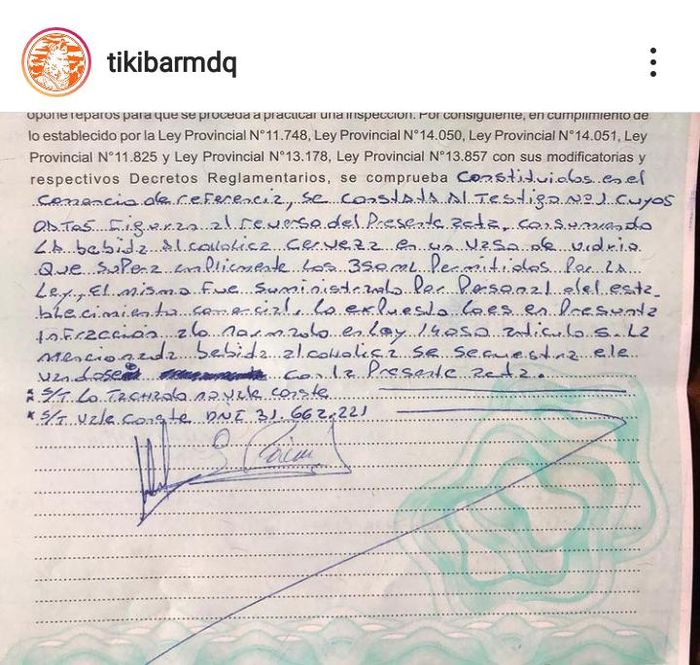 tikibarmdq
opone reparos para que se proceda a practicar una inspección. Por consiguiente, en cumplimiento de
lo establecido por la Ley Provincial N°11.748, Ley Provincial N°14.050, Ley Provincial N°14.051, Ley
Provincial N°11.825 y Ley Provincial N°13.178, Ley Provincial N°13.857 con sus modificatorias y
respectivos Decretos Reglamentarios, se comprueba Constituidos en el
comercio de referencia, se constata al Testigo No 1 cuyos
datos figuran al reverso del Presente acta, consumiendo
la bebida alcoholica cerveza en un vaso de vidrio
que supera ampliamente los 350 ml Permitidos Por la
Ley, El mismo fue suministrado Por Personal del esta-
blecimiento comercial, lo expuesto lo es en Presunta
infraccion a lo normado en Ley 14050 articulo 6. La
mencionada bebida alcoholica se secuestra ele
vandose con la Presente acta.
* S/T Lo Tachado no vale conste
* S/T vale conste DNI 31.662.221